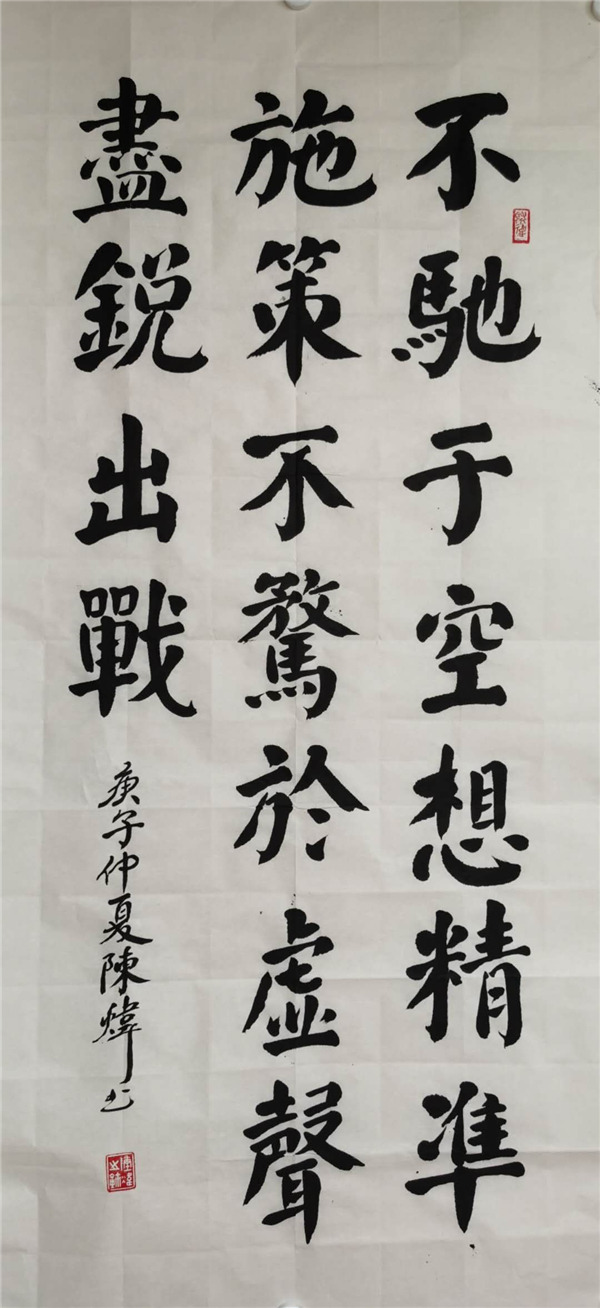 不馳于空想精凖
施策不騖於虚聲
盡鋭出戰
庚子仲夏陳煒书